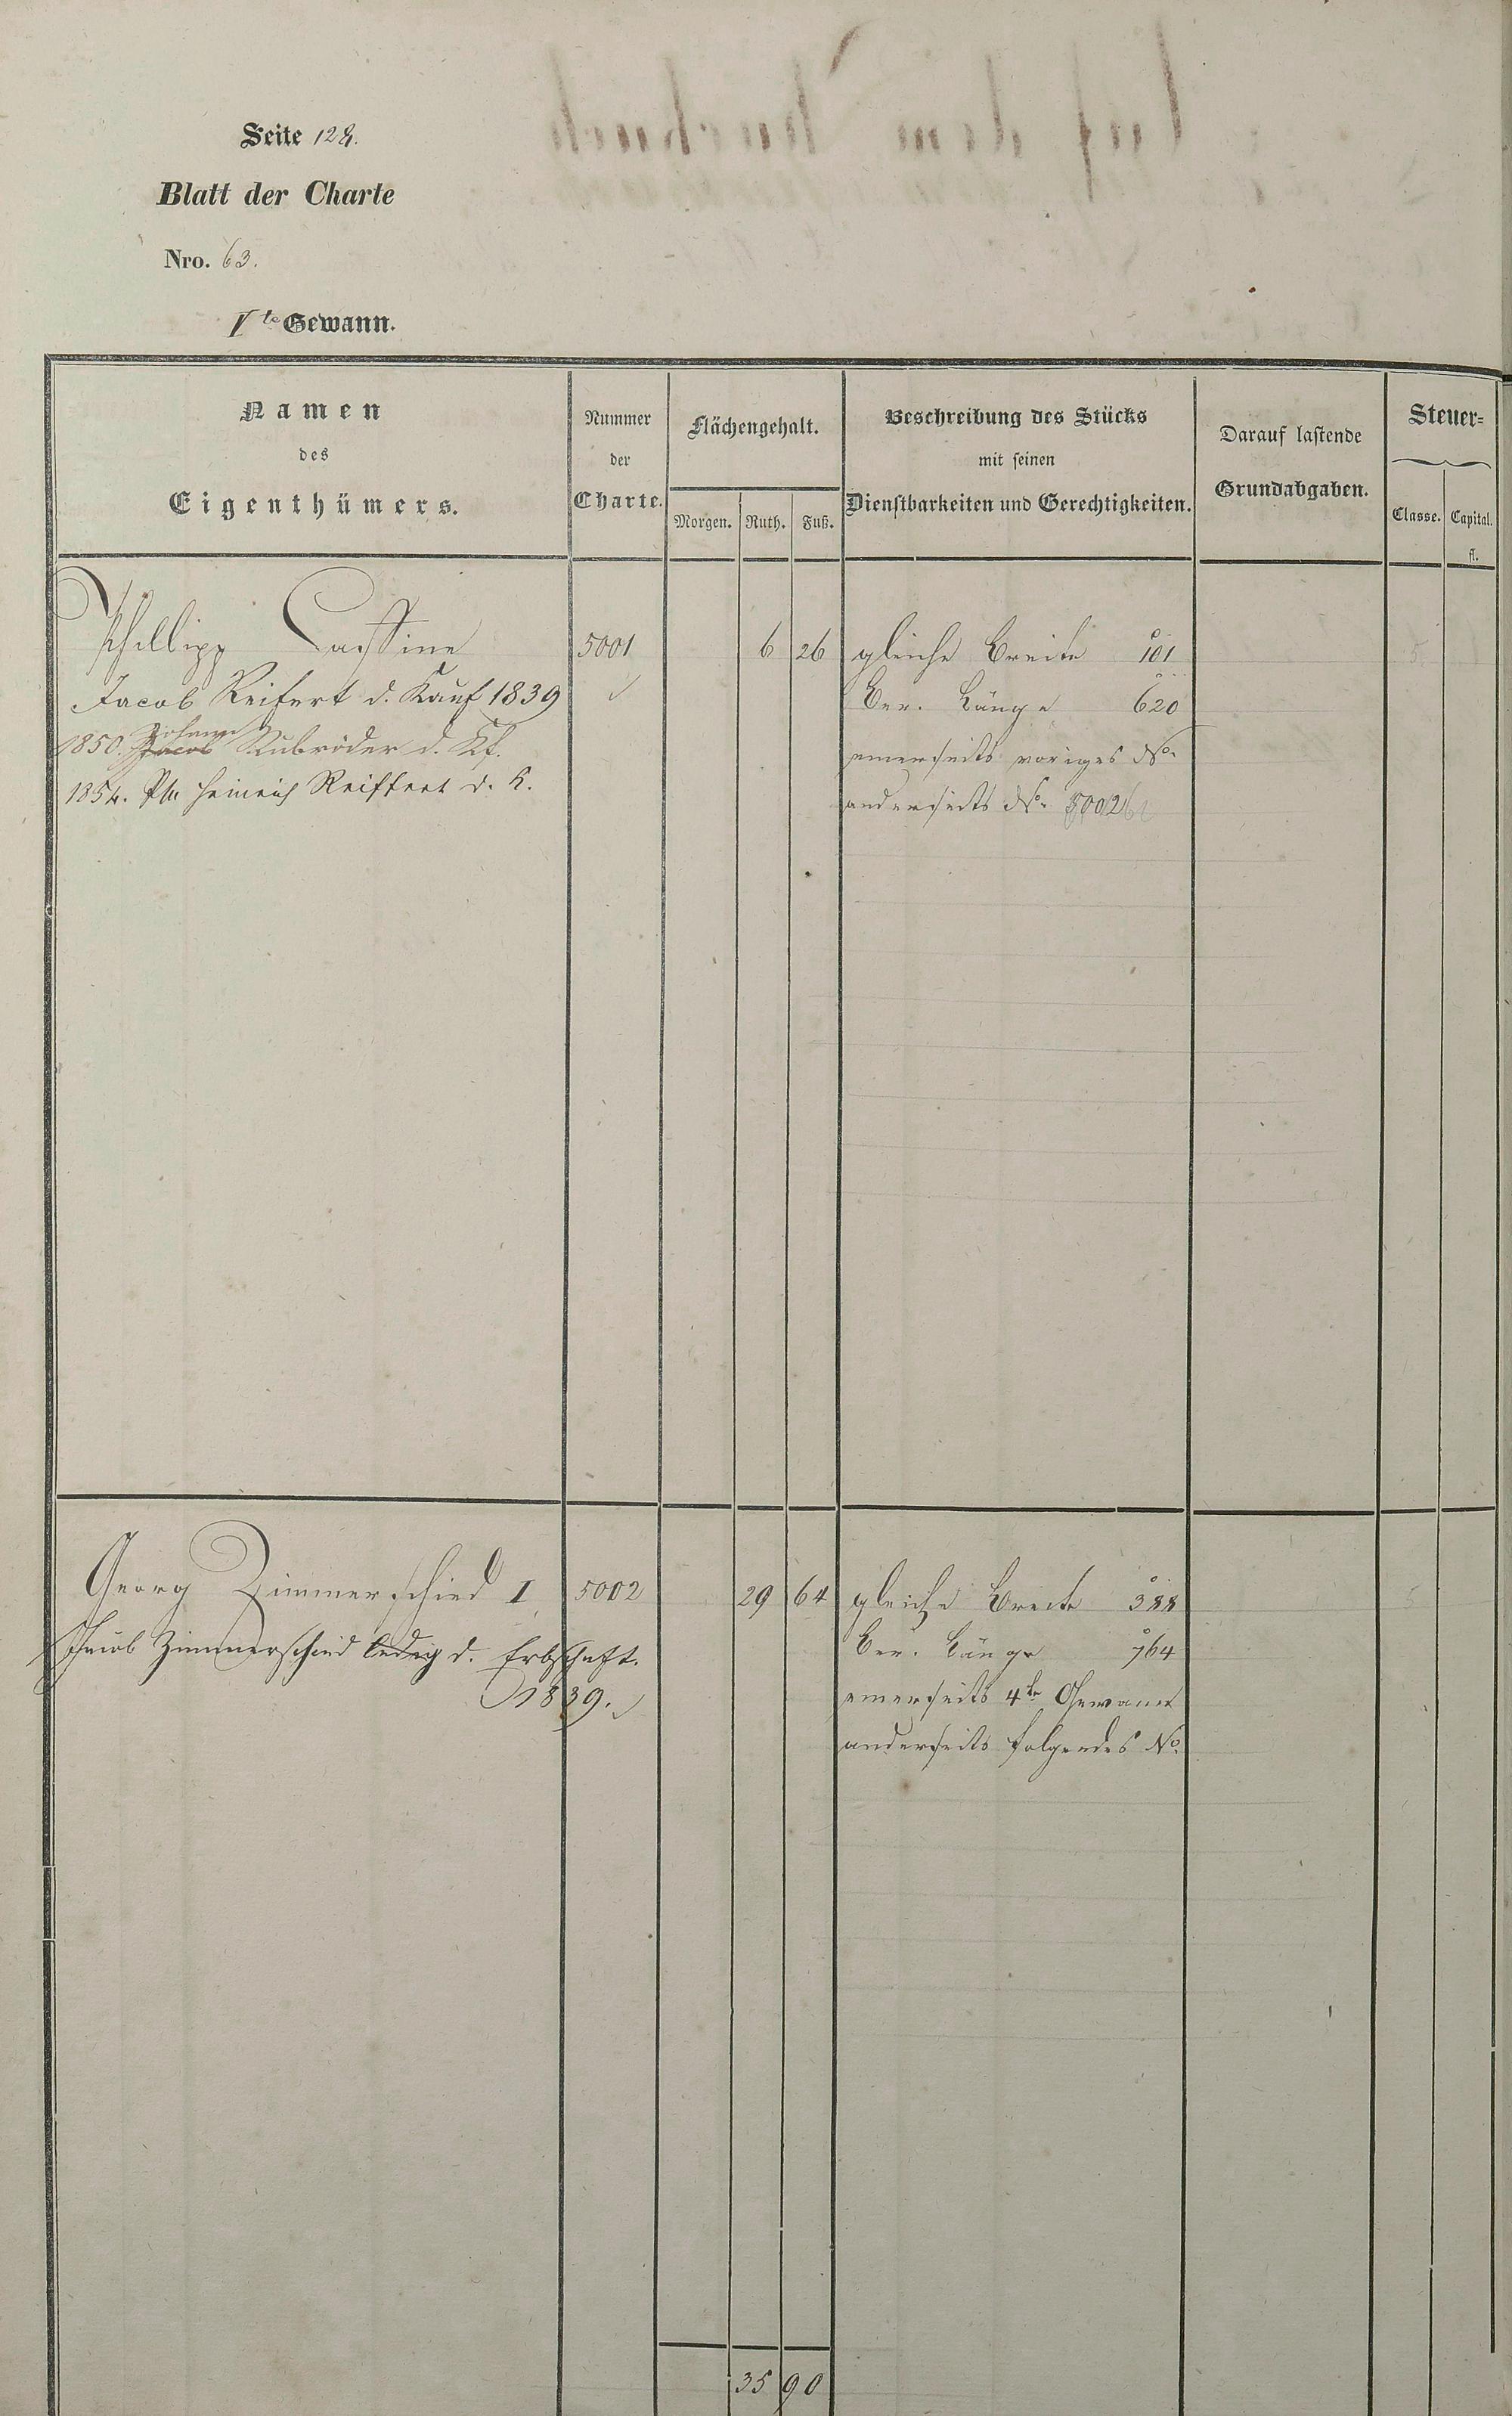 Seite 128.
Blatt der Charte
Nro. 63.
Vte Gewann.
Namen
des
Eigenthümers.
Nummer
der
Charte.
Flächengehalt.
Morgen. Ruth. Fuß.
Beschreibung des Stücks
mit seinen
Dienstbarkeiten und Gerechtigkeiten.
Darauf lastende
Grundabgaben.
Steuer=
Classe. Capital.
fl.
Phillipp Cassine 5001 6 26 gleiche Breite 101 5
Jacob Reifert d. Kauf 1839 Ber. Länge 620
Johann
1850. Jacob Rubröder d. Kf. einerseits voriges No
1854. Phil Heinrich Reiffert d. K. anderseits No 5002
Georg Zimmerschied I 5002 29 64 gleiche Breite 388 5
Jacob Zimmerschied ledig d. Erbschaft. Ber. Länge 764
1839. einerseits 4te Gewann
anderseits folgendes No
35 90